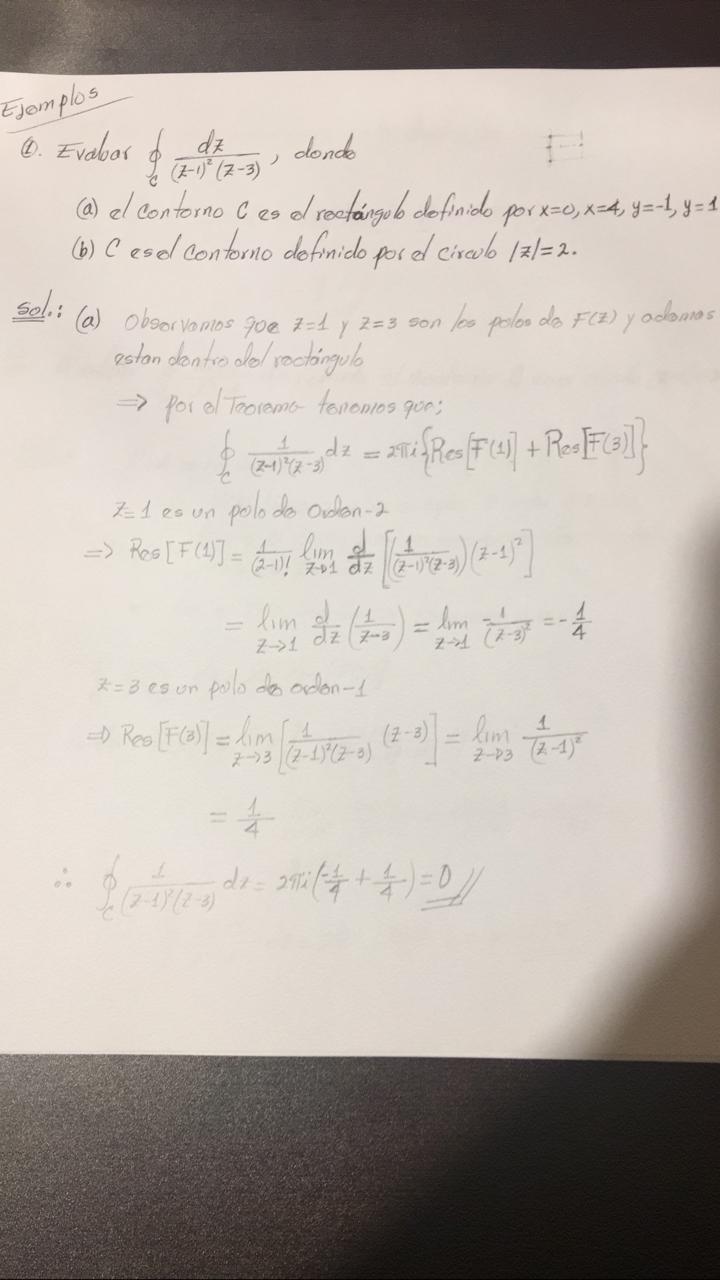 Ejemplos
①. Evaluar ∮_C dz/((z-1)²(z-3)), donde
(a) el contorno C es el rectángulo definido por x=0, x=4, y=-1, y=1
(b) C es el contorno definido por el círculo |z|=2.
Sol.: (a) Observamos que z=1 y z=3 son los polos de F(z) y ademas
estan dentro del rectángulo
⇒ por el Teorema tenemos que;
∮_C 1/((z-1)²(z-3)) dz = 2πi{Res[F(1)] + Res[F(3)]}
z=1 es un polo de orden-2
⇒ Res[F(1)] = 1/(2-1)! lim_{z→1} d/dz [(1/((z-1)²(z-3)))(z-1)²]
= lim_{z→1} d/dz (1/(z-3)) = lim_{z→1} -1/(z-3)² = -1/4
z=3 es un polo de orden-1
⇒ Res[F(3)] = lim_{z→3} [1/((z-1)²(z-3)) (z-3)] = lim_{z→3} 1/(z-1)²
= 1/4
∴ ∮_C 1/((z-1)²(z-3)) dz = 2πi(-1/4 + 1/4) = 0 //